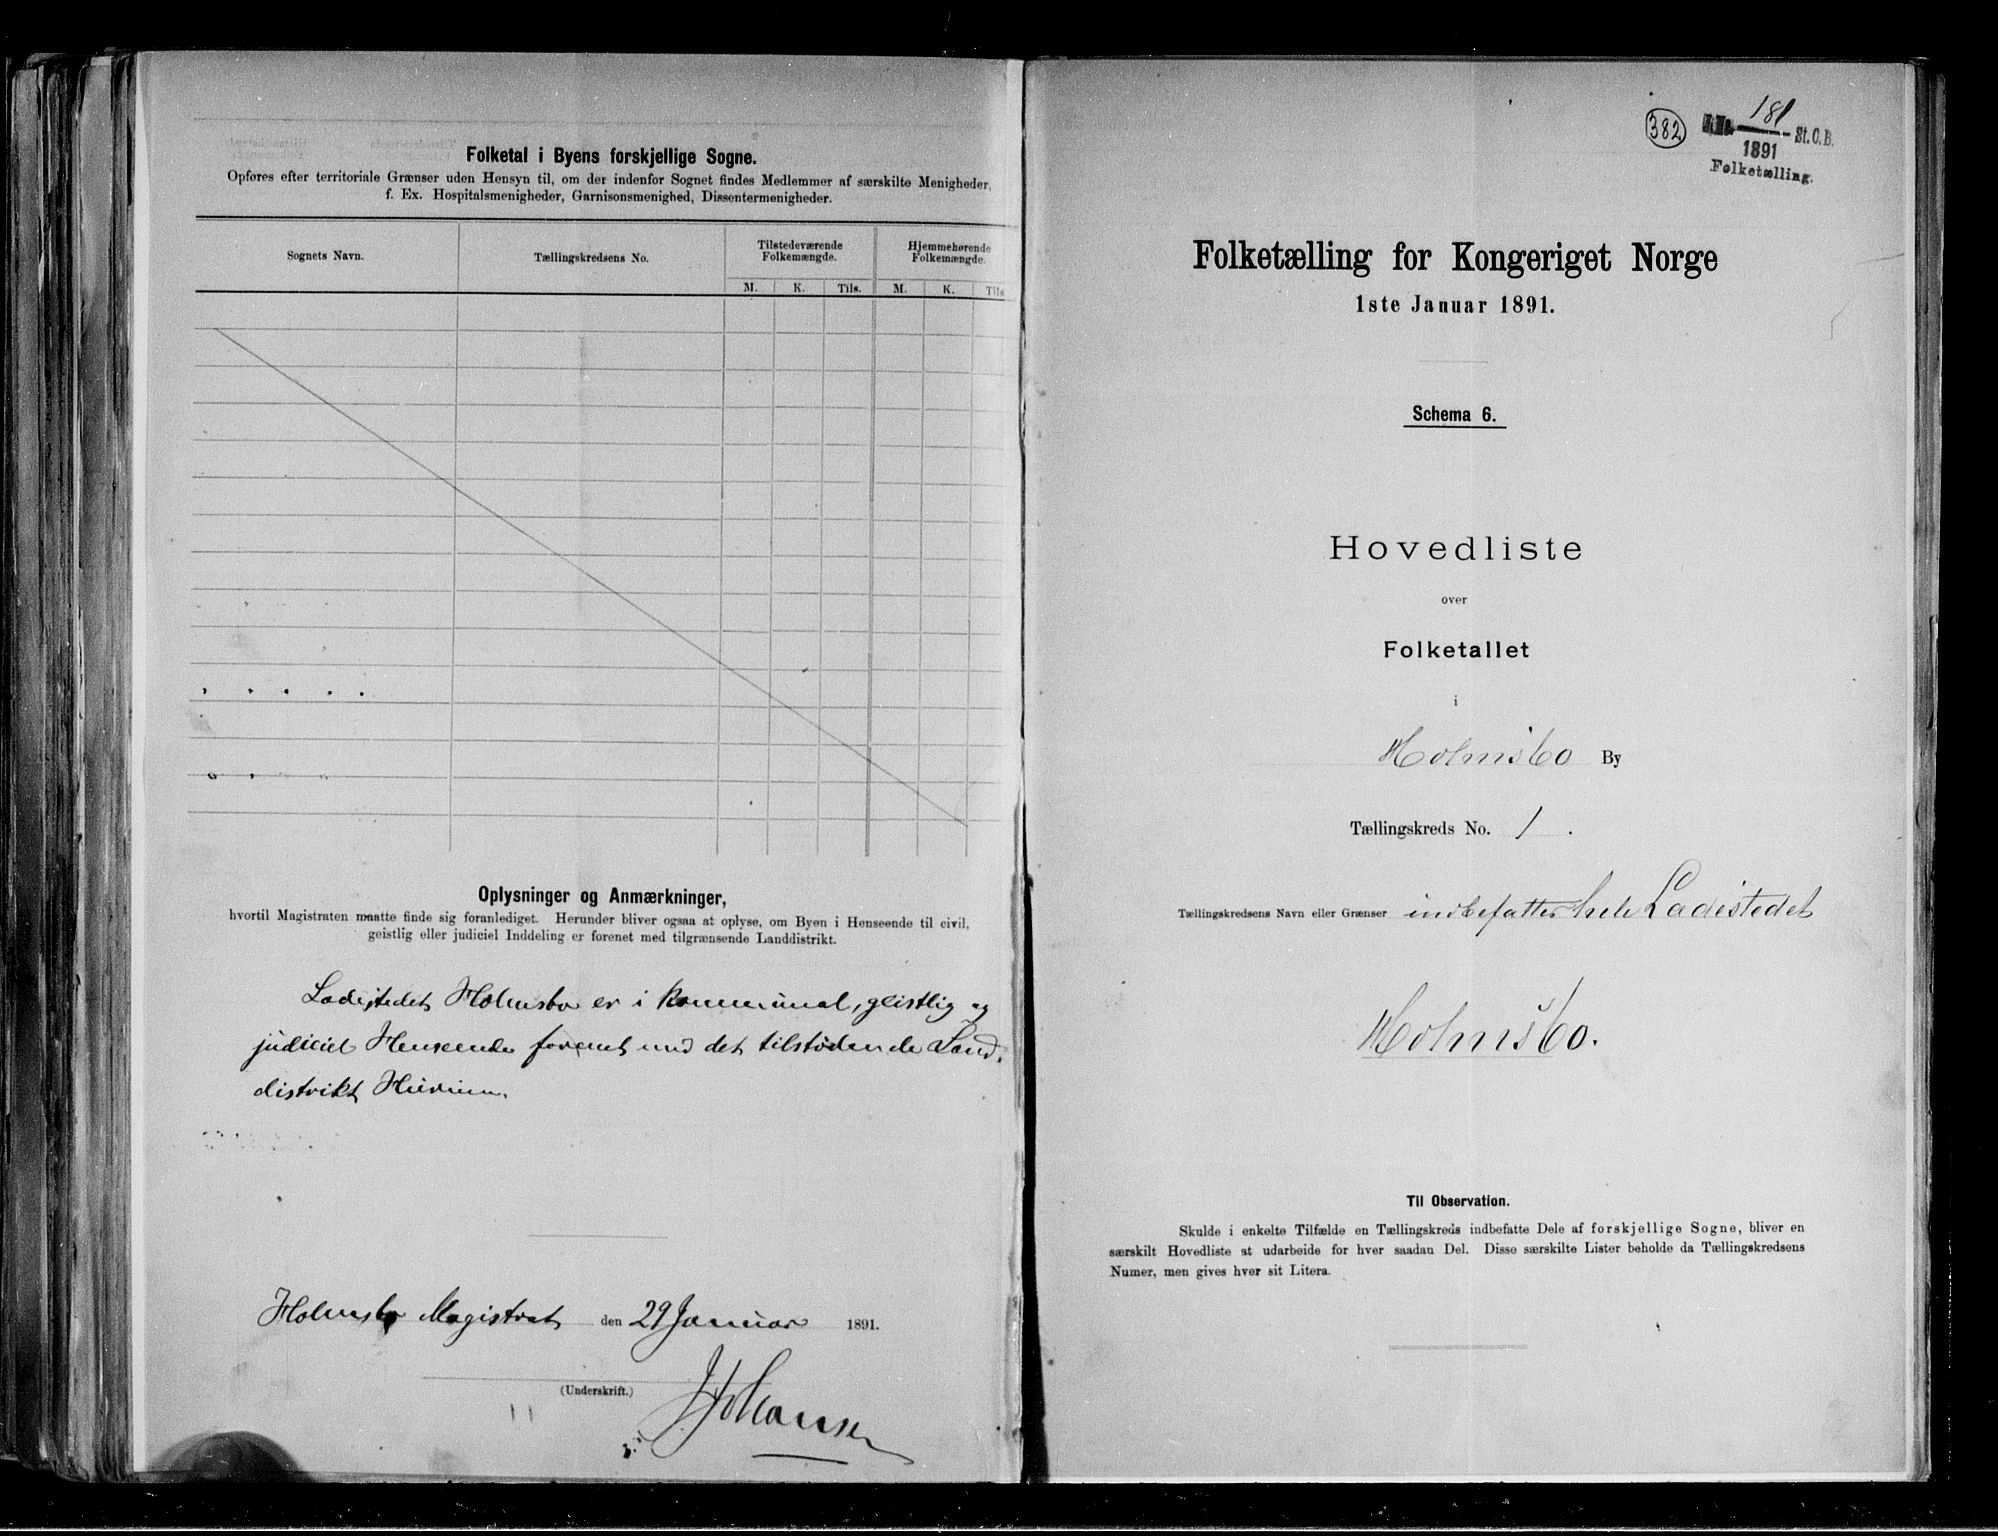 Folketal i Byens forskjellige Sogne.
Opføres efter territoriale Grænser uden Hensyn til, om der indenfor Sognet findes Medlemmer af særskilte Menigheder,
f. Ex. Hospitalsmenigheder, Garnisonsmenighed, Dissentermenigheder.
Sognets Navn.
Tællingskredsens No.
Tilstedeværende
Folkemængde.
Hjemmehørende
Folkemængde.
M. K. Tils. M. K. Tils
Oplysninger og Anmærkninger,
hvortil Magistraten maatte finde sig foranlediget. Herunder bliver ogsaa at oplyse, om Byen i Henseende til civil,
geistlig eller judiciel Inddeling er forenet med tilgrænsende Landdistrikt.
Ladestedet Holmsbo er i kommunal, geistlig og
judiciel Henseende forenet med det tilstødende Land-
distrikt Hurum.
Holmsbo Magistrat den 29 Januar 1891.
(Underskrift.)
382
181
J. No. St. O. B.
1891
Folketælling.
Folketælling for Kongeriget Norge
1ste Januar 1891.
Schema 6.
Hovedliste
over
Folketallet
i
Holmsbo By
Tællingskreds No. 1.
Tællingskredsens Navn eller Grænser indbefatter hele Ladestedet
Holmsbo.
Til Observation.
Skulde i enkelte Tilfælde en Tællingskreds indbefatte Dele af forskjellige Sogne, bliver en
særskilt Hovedliste at udarbeide for hver saadan Del. Disse særskilte Lister beholde da Tællingskredsens
Numer, men gives hver sit Litera.